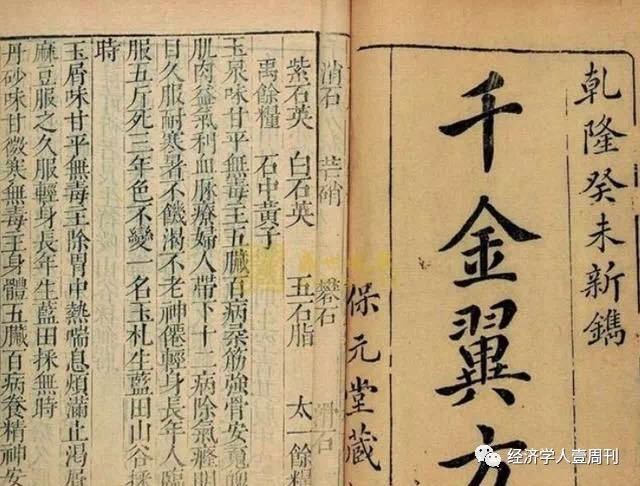 乾隆癸未新鐫
千金翼方
保元堂藏
消石 芒硝 礬石 滑石
紫石英 白石英 五石脂 太一餘糧
禹餘糧 石中黃子
玉泉味甘平無毒主五臟百病柔筋強骨安魂魄
肌肉益氣利血脉療婦人帶下十二病除氣癃明
目久服耐寒暑不饑渴不老神僊輕身長年人臨
服五斤死三年色不變一名玉札生藍田山谷採
時
玉屑味甘平無毒主除胃中熱喘息煩滿止渴屑
麻豆服之久服輕身長年生藍田採無時
丹砂味甘微寒無毒主身體五臟百病養精神安
经济学人壹周刊